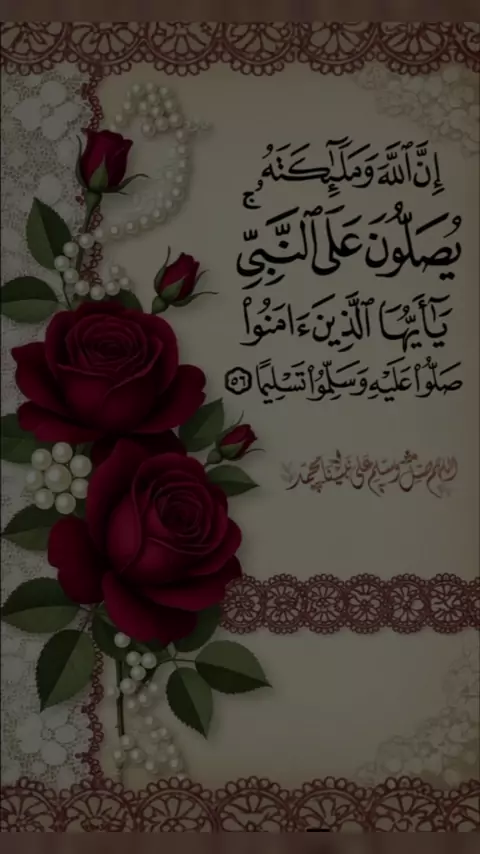 إِنَّ ٱللَّهَ وَمَلَـٰٓئِكَتَهُۥ
يُصَلُّونَ عَلَى ٱلنَّبِىِّ ۚ
يَـٰٓأَيُّهَا ٱلَّذِينَ ءَامَنُوا۟
صَلُّوا۟ عَلَيْهِ وَسَلِّمُوا۟ تَسْلِيمًا ﴿٥٦﴾
اللهم صل وسلم على نبينا محمد